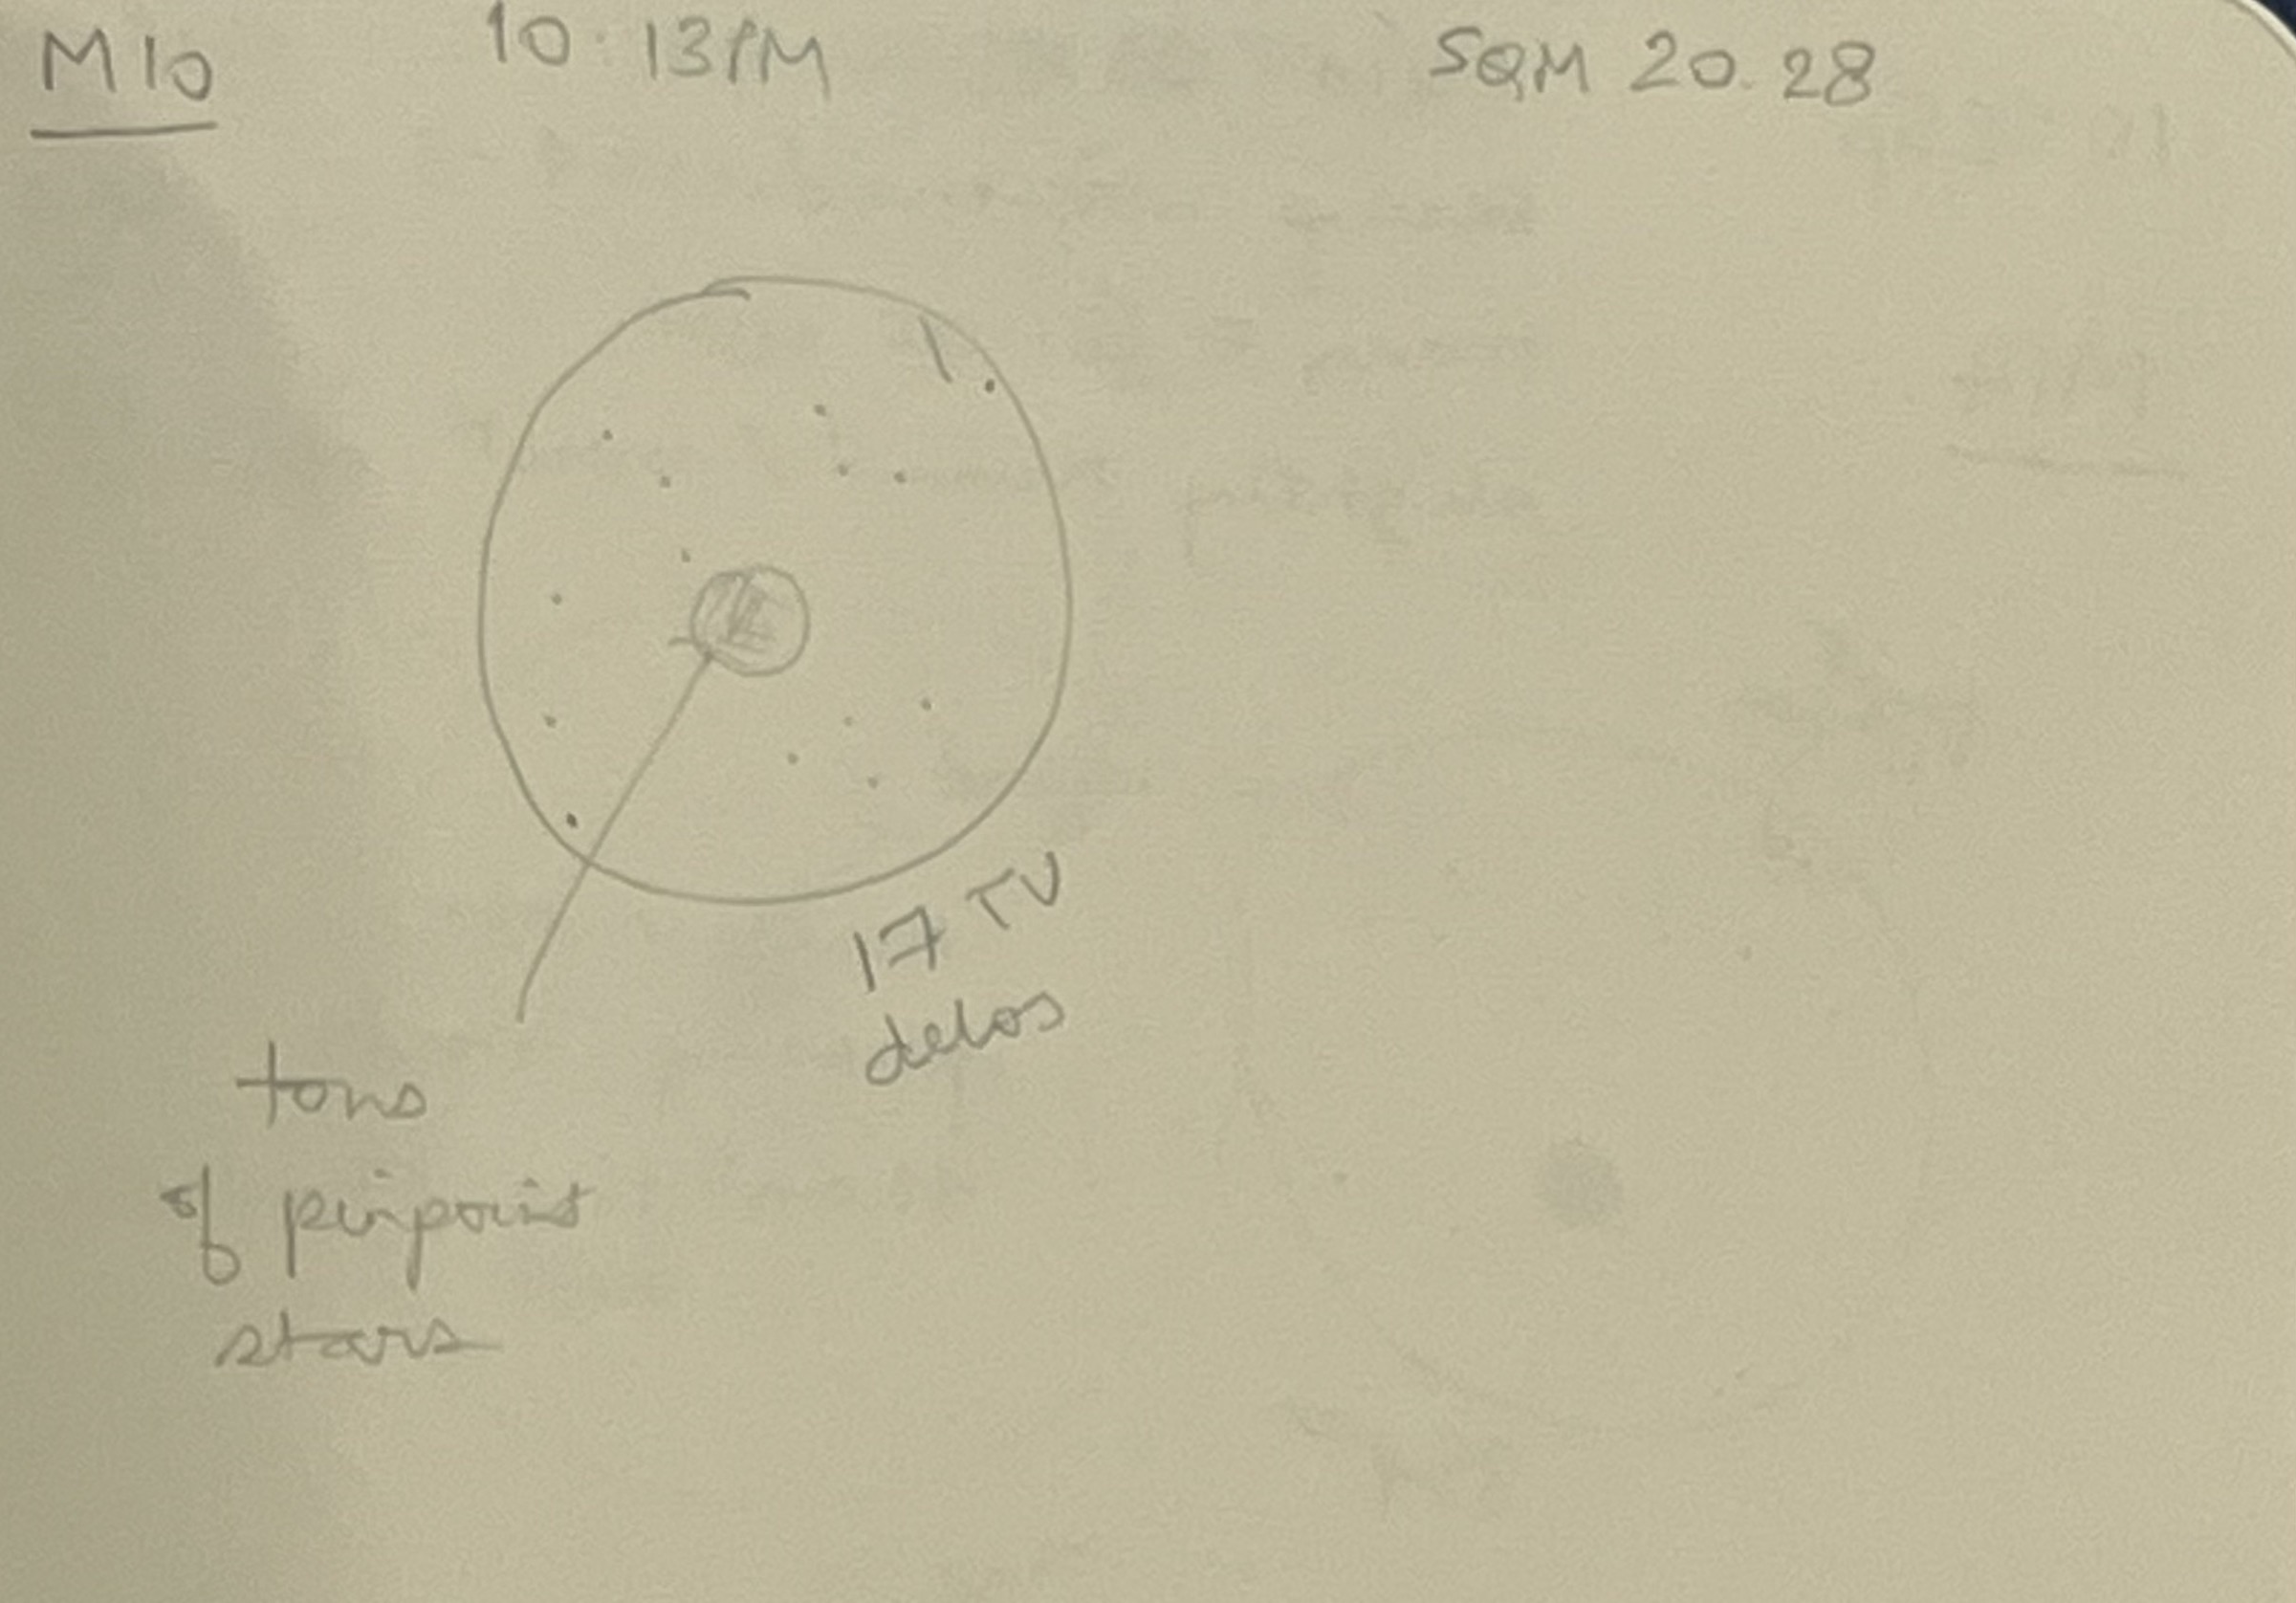 M10 10:13PM SQM 20.28
17 TV
delos
tons
of pinpoint
stars